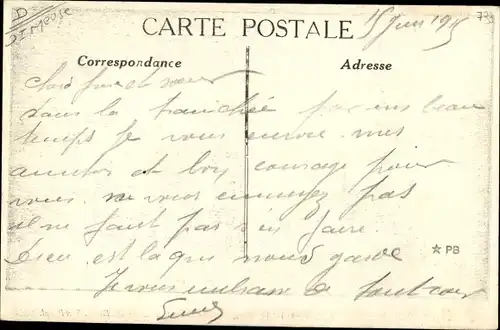 D
55 Meuse
CARTE POSTALE
15 Juin 1915
739
Correspondance
Adresse
Cher frere et sœur
dans la tranchée par un beau
temps je vous envoie mes
amitiés et bon courage pour
vous. ne vous ennuyez pas
il ne faut pas s'en faire.
Dieu est la qui nous garde
★ PB
Je vous embrasse de tout cœur